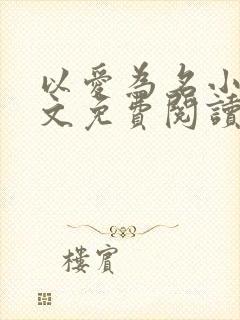 以愛為名小
文免費閱讀
樓賓